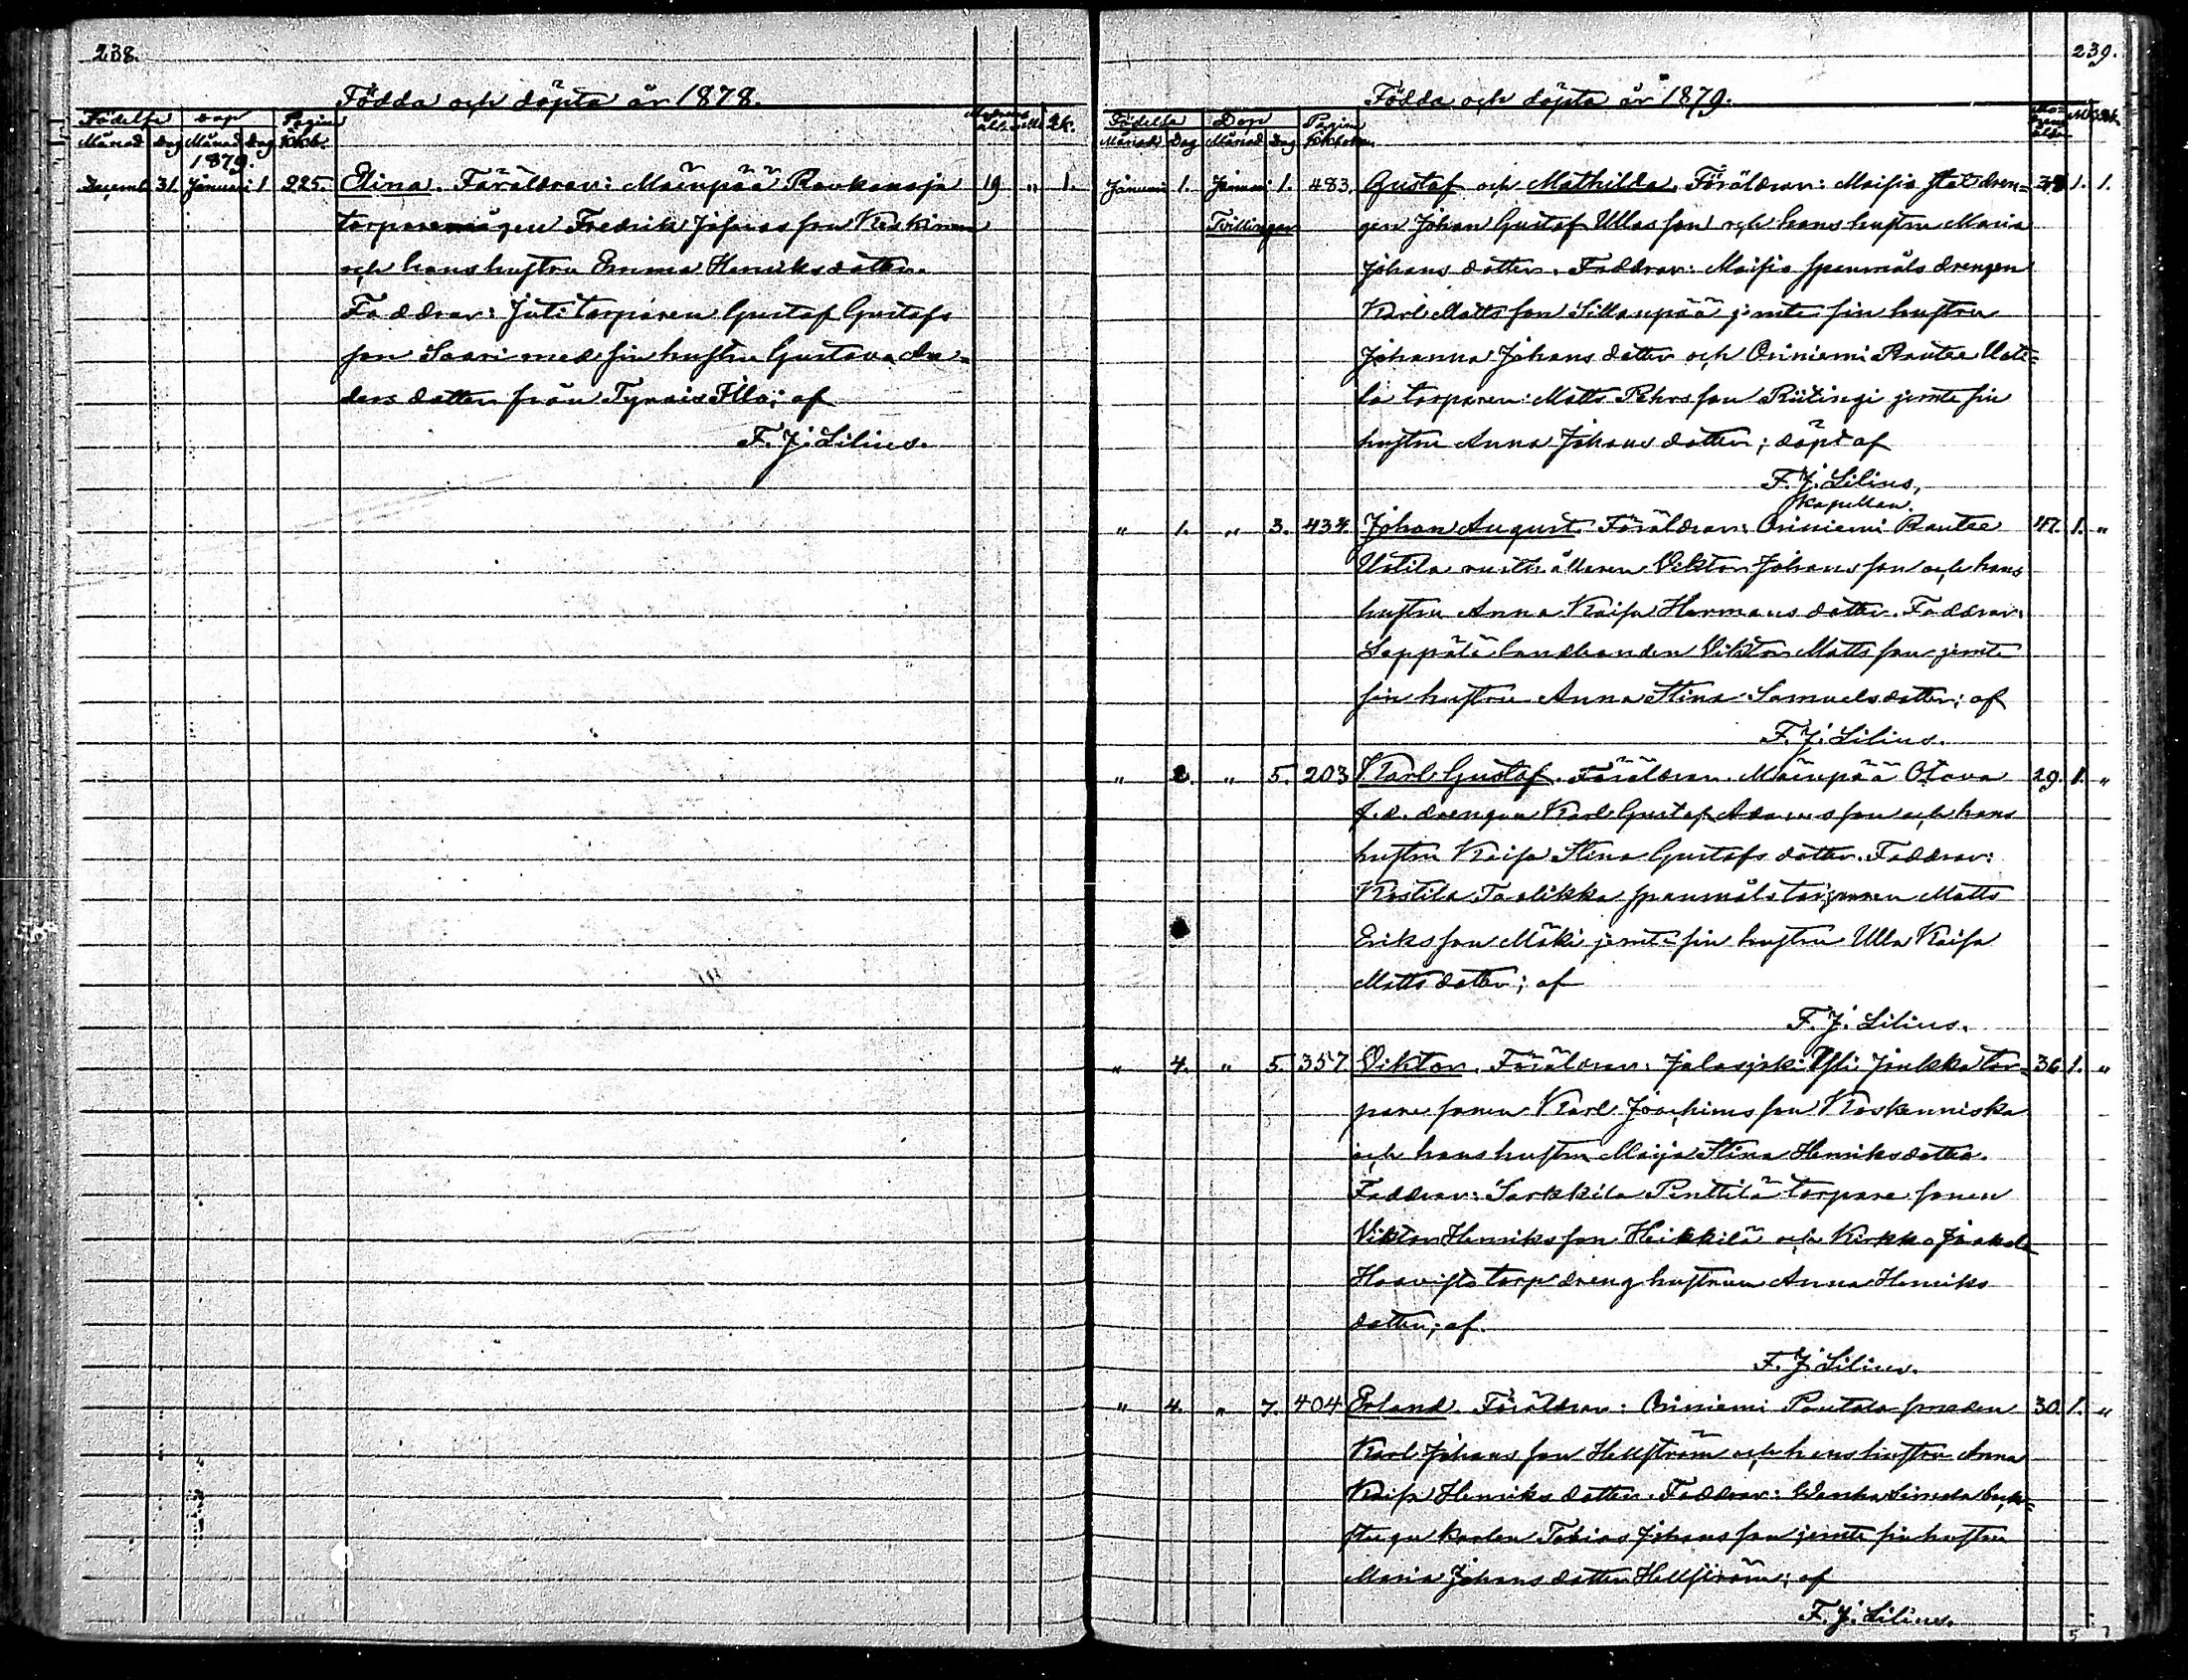 238.
Födda och döpta år 1878.
Födelse Dop Pagina
Månad Dag Månad Dag Kkb. Modrens åld. Mk. Qk.
1879.
Decemb. 31. Januari 1 225. Elina. Föräldrar: Mäenpää Raukanoja 19 " 1.
torparemågen Fredrik Josefsson Keskinen
och hans hustru Emma Henriksdotter.
Faddrar: Juti torparen Gustaf Gustafs
son Saari med sin hustru Gustava An-
dersdotter från Tyrvis Illo; af
F. J. Lilius.
239.
Födda och döpta år 1879.
Födelse Dop Pagina
Månad Dag Månad Dag Kkboken Mo-
drens
ålder Mk. Qk.
Januari 1. Januari 1. 483. Gustaf och Mathilda. Föräldrar: Moisio statdren- 1. 1.
Tvillingar gen Johan Gustaf Ullasson och hans hustru Maria
Johansdotter. Faddrar: Moisio spanmåls drengen
Karl Mattsson Sillanpää jemte sin hustru
Johanna Johansdotter och Oriniemi Rautee Uoti-
la torparen Matts Pehrsson Riitingi jemte sin
hustru Anna Johansdotter; döpt af
F. J. Lilius,
Kapellan.
" 1. " 3. 434. Johan August. Föräldrar: Oriniemi Rautee 47. 1. "
Uotila rusthållaren Viktor Johansson och hans
hustru Anna Kaisa Hermansdotter. Faddrar:
Leppälä landbonden Viktor Mattsson jemte
sin hustru Anna Stina Samuelsdotter; af
F. J. Lilius.
" 2. " 5. 203 Karl Gustaf. Föräldrar. Mäenpää Otava 29. 1. "
f. d. drengen Karl Gustaf Adamsson och hans
hustru Kaisa Stina Gustafsdotter. Faddrar:
Kostila Taalikka spanmålstorparen Matts
Eriksson Mäki jemte sin hustru Ulla Kaisa
Mattsdotter; af
F. J. Lilius.
" 4. " 5. 357 Viktor. Föräldrar: Jalasjoki Yli Juukka tor- 36 1. "
paresonen Karl Joachimsson Koskenniska
och hans hustru Maija Stina Henriksdotter.
Faddrar: Sarkkila Penttilä torpare sonen
Viktor Henriksson Heikkilä och Kirkko Jaakola
Haavisto torp dreng hustrun Anna Henriks
dotter; af.
F. J. Lilius.
" 4. " 7. 404 Erland. Föräldrar: Oriniemi Pautala smeden 30. 1. "
Karl Johansson Hellström och hans hustru Anna
Kaisa Henriksdotter. Faddrar: Simola bak-
stugu karlen Tobias Johansson jemte sin hustru
Maria Johansdotter Hellström; af
F. J. Lilius.
5 1